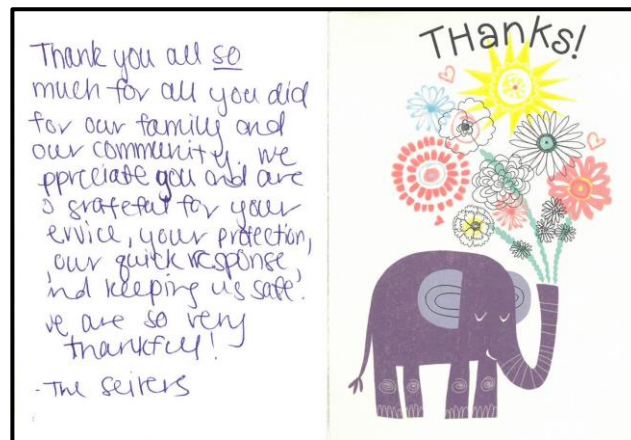 Thank you all so
much for all you did
for our family and
our community. We
ppreciate you and are
o grateful for your
ervice, your protection,
our quick response,
nd keeping us safe.
we are so very
thankful!
- The Seiters
THanks!